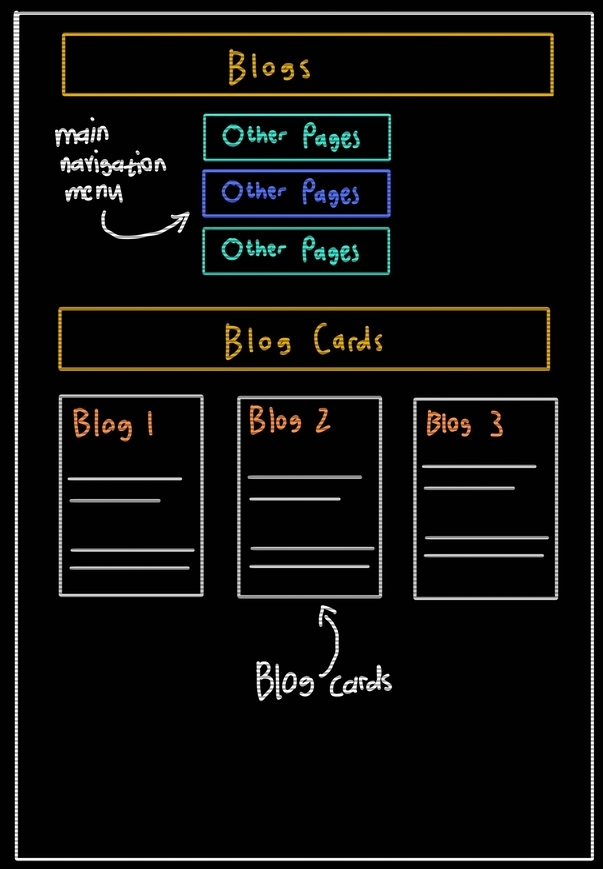 Blogs
main
navigation
menu
Other Pages
Other Pages
Other Pages
Blog Cards
Blog 1
Blog 2
Blog 3
Blog cards